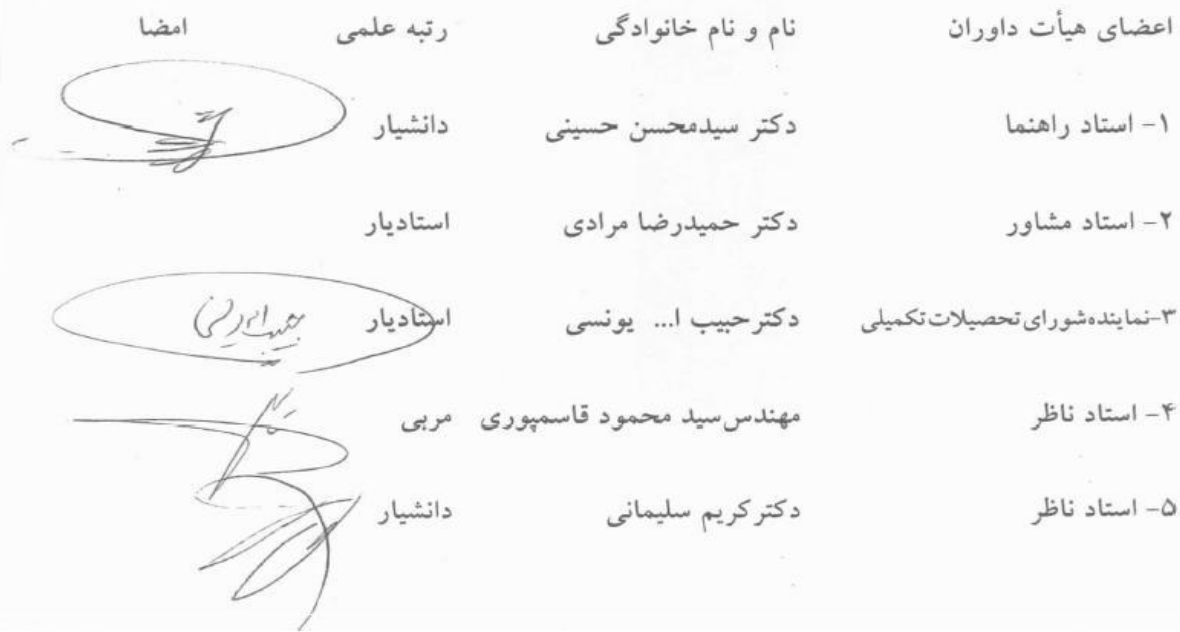 اعضای هیأت داوران نام و نام خانوادگی رتبه علمی امضا
۱- استاد راهنما دکتر سیدمحسن حسینی دانشیار
۲- استاد مشاور دکتر حمیدرضا مرادی استادیار
۳-نماینده‌شورای‌تحصیلات‌تکمیلی دکترحبیب ا... یونسی استادیار
۴- استاد ناظر مهندس‌سید محمود قاسمپوری مربی
۵- استاد ناظر دکترکریم سلیمانی دانشیار